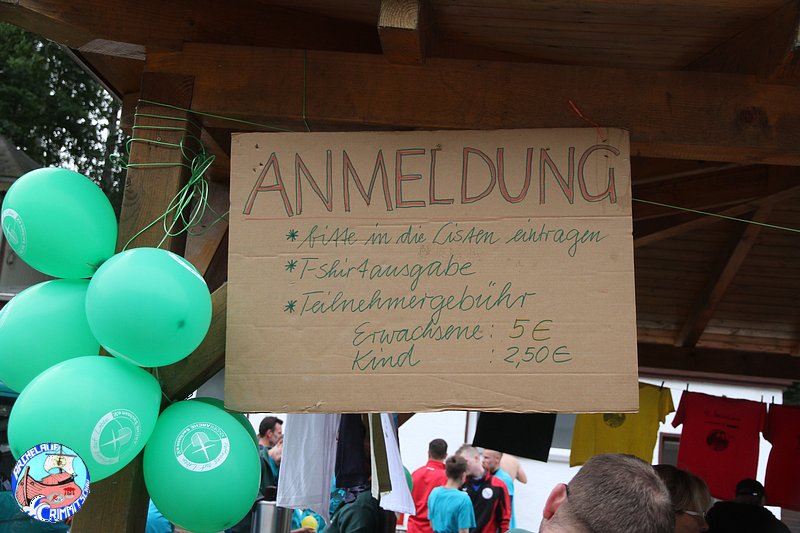 ANMELDUNG
* bitte in die Listen eintragen
* T-Shirtausgabe
* Teilnehmergebühr
Erwachsene : 5€
Kind : 2,50€